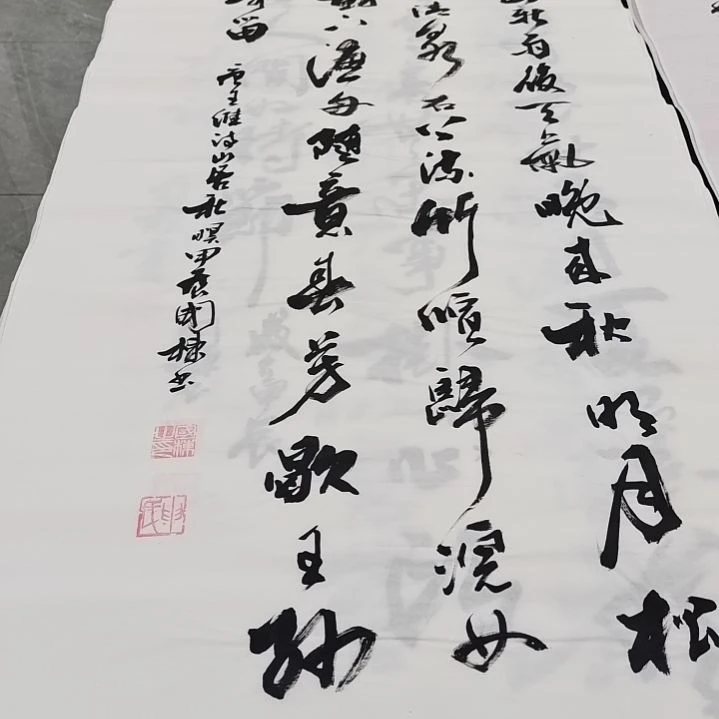 山新雨後天氣晚來秋明月松
清泉石上流竹喧歸浣女
動下漁舟隨意春芳歇王孫
可留
唐王維詩山居秋暝甲辰國書